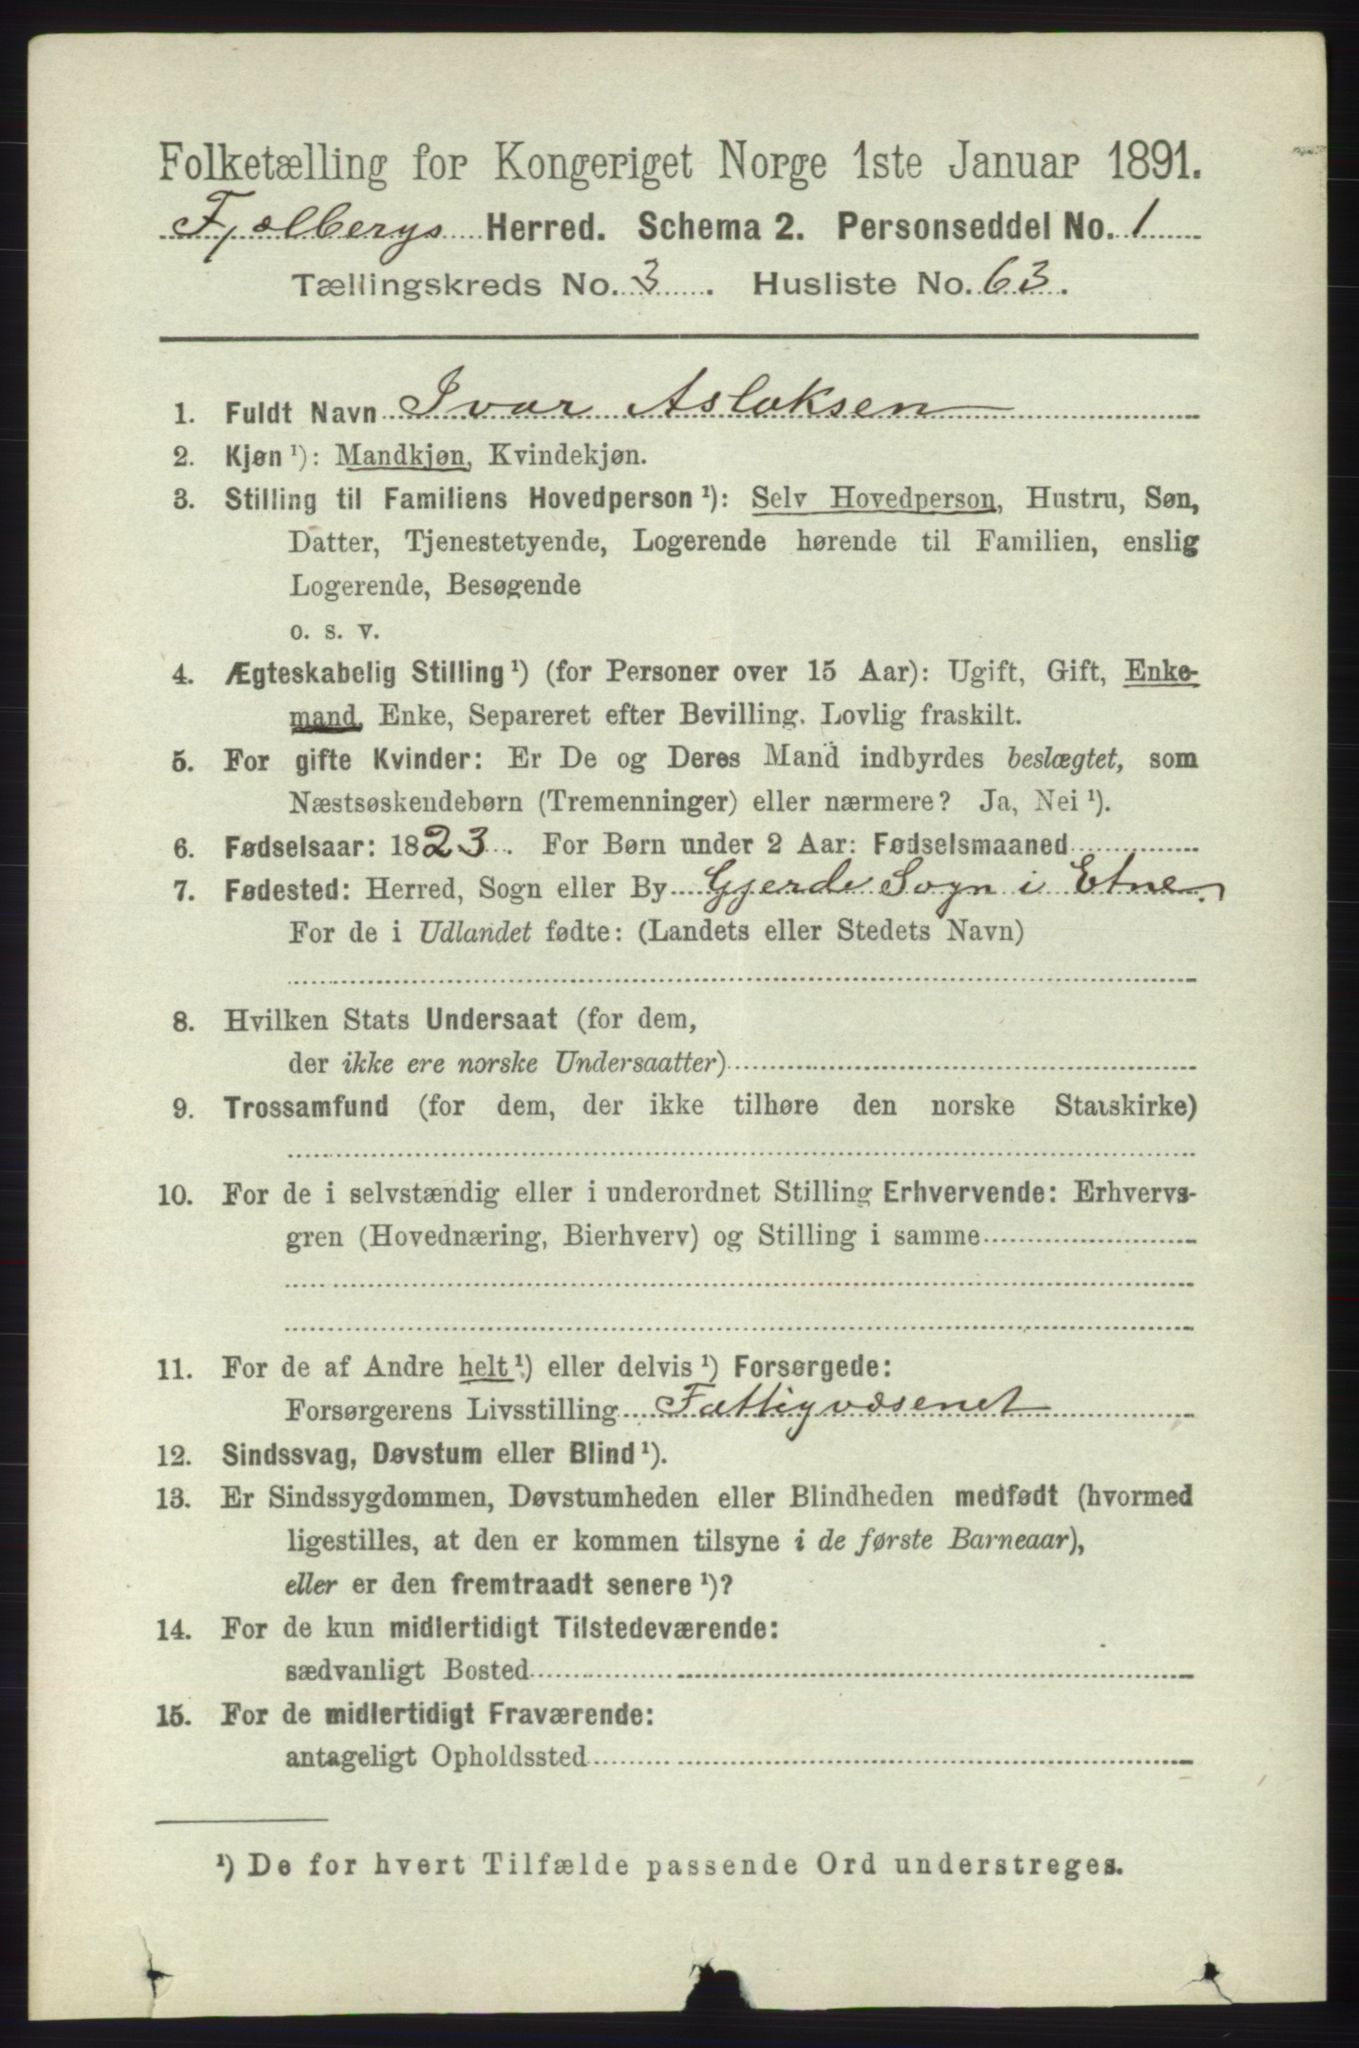 Folketælling for Kongeriget Norge 1ste Januar 1891.
Fjælbergs Herred. Schema 2. Personseddel No. 1
Tællingskreds No. 3. Husliste No. 63.
1. Fuldt Navn Ivar Aslaksen
2. Kjøn ¹): Mandkjøn, Kvindekjøn.
3. Stilling til Familiens Hovedperson ¹): Selv Hovedperson, Hustru, Søn,
Datter, Tjenestetyende, Logerende hørende til Familien, enslig
Logerende, Besøgende
o. s. v.
4. Ægteskabelig Stilling ¹) (for Personer over 15 Aar): Ugift, Gift, Enke-
mand, Enke, Separeret efter Bevilling. Lovlig fraskilt.
5. For gifte Kvinder: Er De og Deres Mand indbyrdes beslægtet, som
Næstsøskendebørn (Tremenninger) eller nærmere? Ja, Nei ¹).
6. Fødselsaar: 1823. For Børn under 2 Aar: Fødselsmaaned
7. Fødested: Herred, Sogn eller By Gjerde Sogn i Etne
For de i Udlandet fødte: (Landets eller Stedets Navn)
8. Hvilken Stats Undersaat (for dem,
der ikke ere norske Undersaatter)
9. Trossamfund (for dem, der ikke tilhøre den norske Statskirke)
10. For de i selvstændig eller i underordnet Stilling Erhvervende: Erhvervs-
gren (Hovednæring, Bierhverv) og Stilling i samme
11. For de af Andre helt ¹) eller delvis ¹) Forsørgede:
Forsørgerens Livsstilling Fattigvæsenet
12. Sindssvag, Døvstum eller Blind ¹).
13. Er Sindssygdommen, Døvstumheden eller Blindheden medfødt (hvormed
ligestilles, at den er kommen tilsyne i de første Barneaar),
eller er den fremtraadt senere ¹)?
14. For de kun midlertidigt Tilstedeværende:
sædvanligt Bosted
15. For de midlertidigt Fraværende:
antageligt Opholdssted
¹) De for hvert Tilfælde passende Ord understreges.